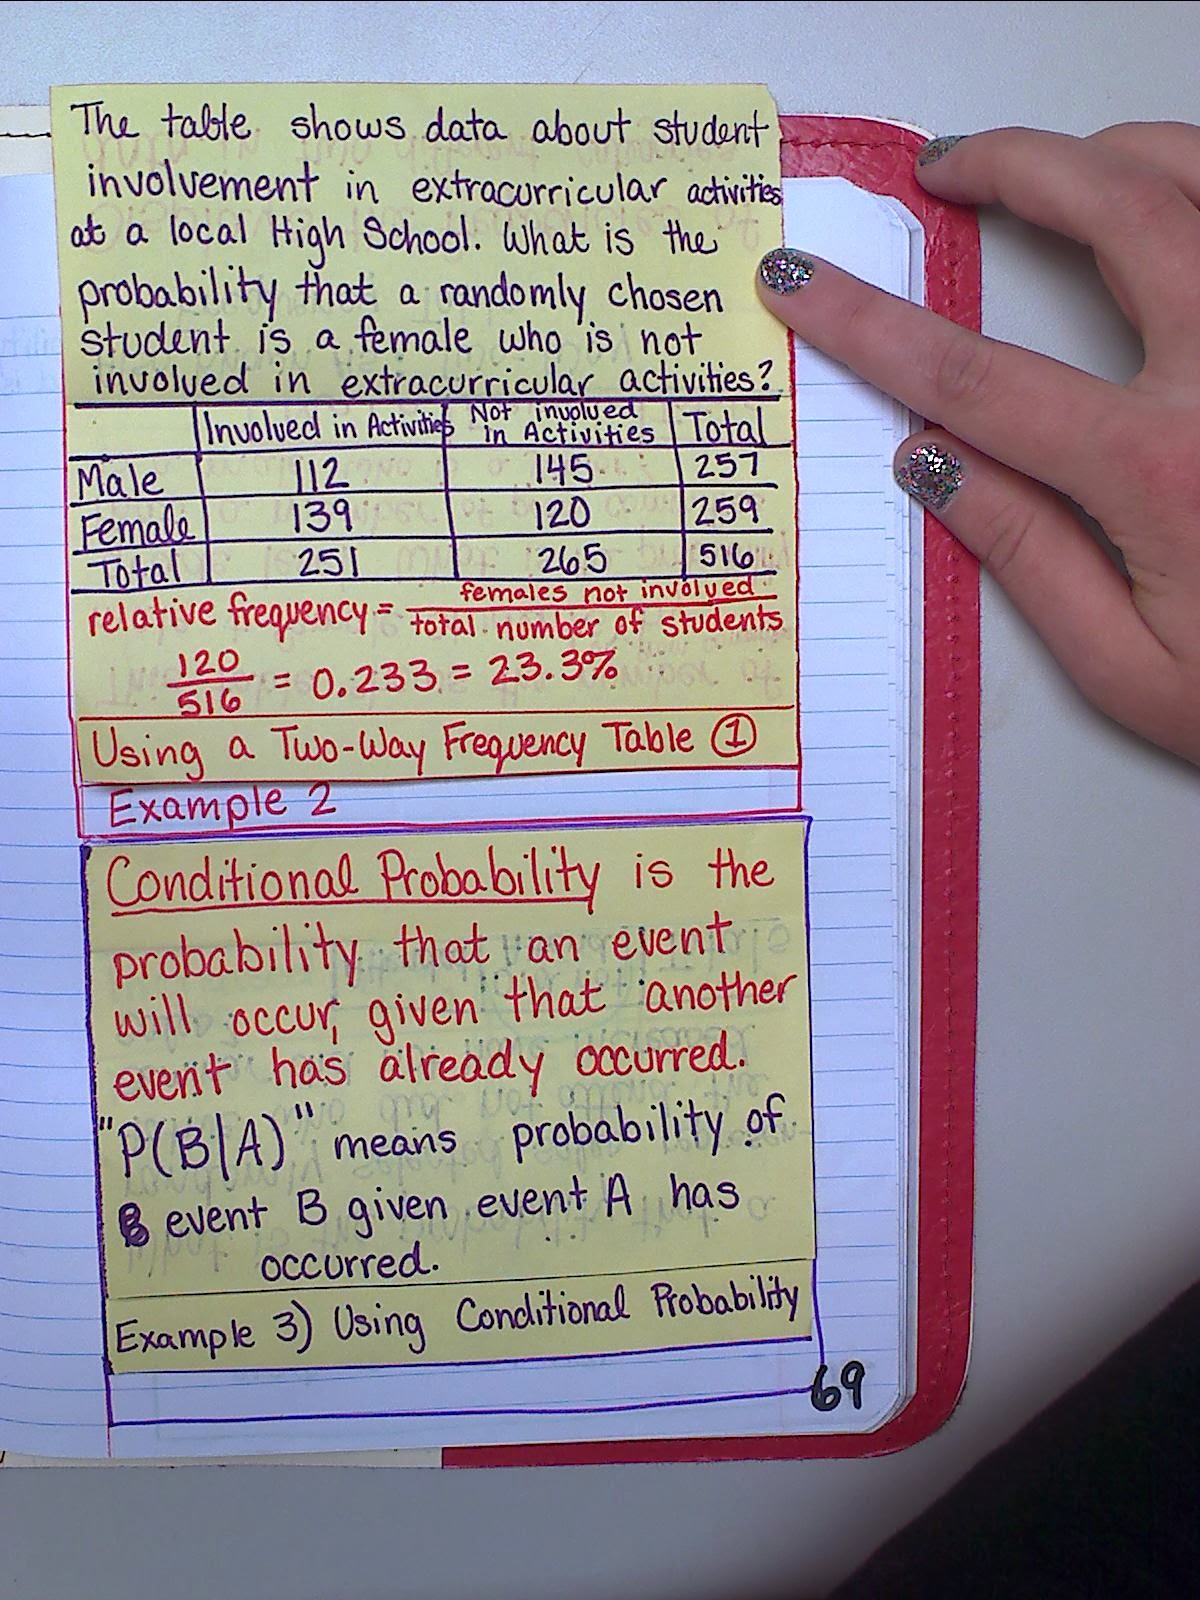 The table shows data about student
involvement in extracurricular activities
at a local High School. What is the
probability that a randomly chosen
student is a female who is not
involved in extracurricular activities?
Involved in Activities Not involved in Activities Total
Male 112 145 257
Female 139 120 259
Total 251 265 516
relative frequency = females not involved / total number of students
120/516 = 0.233 = 23.3%
Using a Two-Way Frequency Table ①
Example 2
Conditional Probability is the
probability that an event
will occur, given that another
event has already occurred.
"P(B|A)" means probability of
event B given event A has
occurred.
Example 3) Using Conditional Probability
69